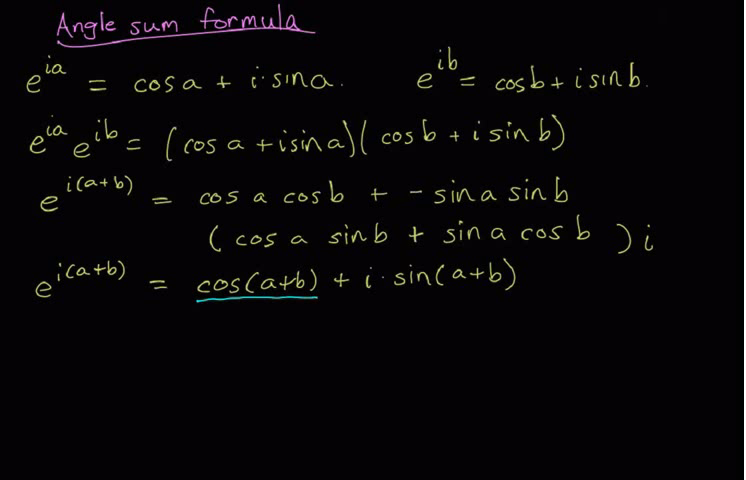 Angle sum formula
e^{ia} = cos a + i · sin a. e^{ib} = cos b + i sin b.
e^{ia} e^{ib} = (cos a + i sin a)(cos b + i sin b)
e^{i(a+b)} = cos a cos b + - sin a sin b
(cos a sin b + sin a cos b) i
e^{i(a+b)} = cos(a+b) + i · sin(a+b)